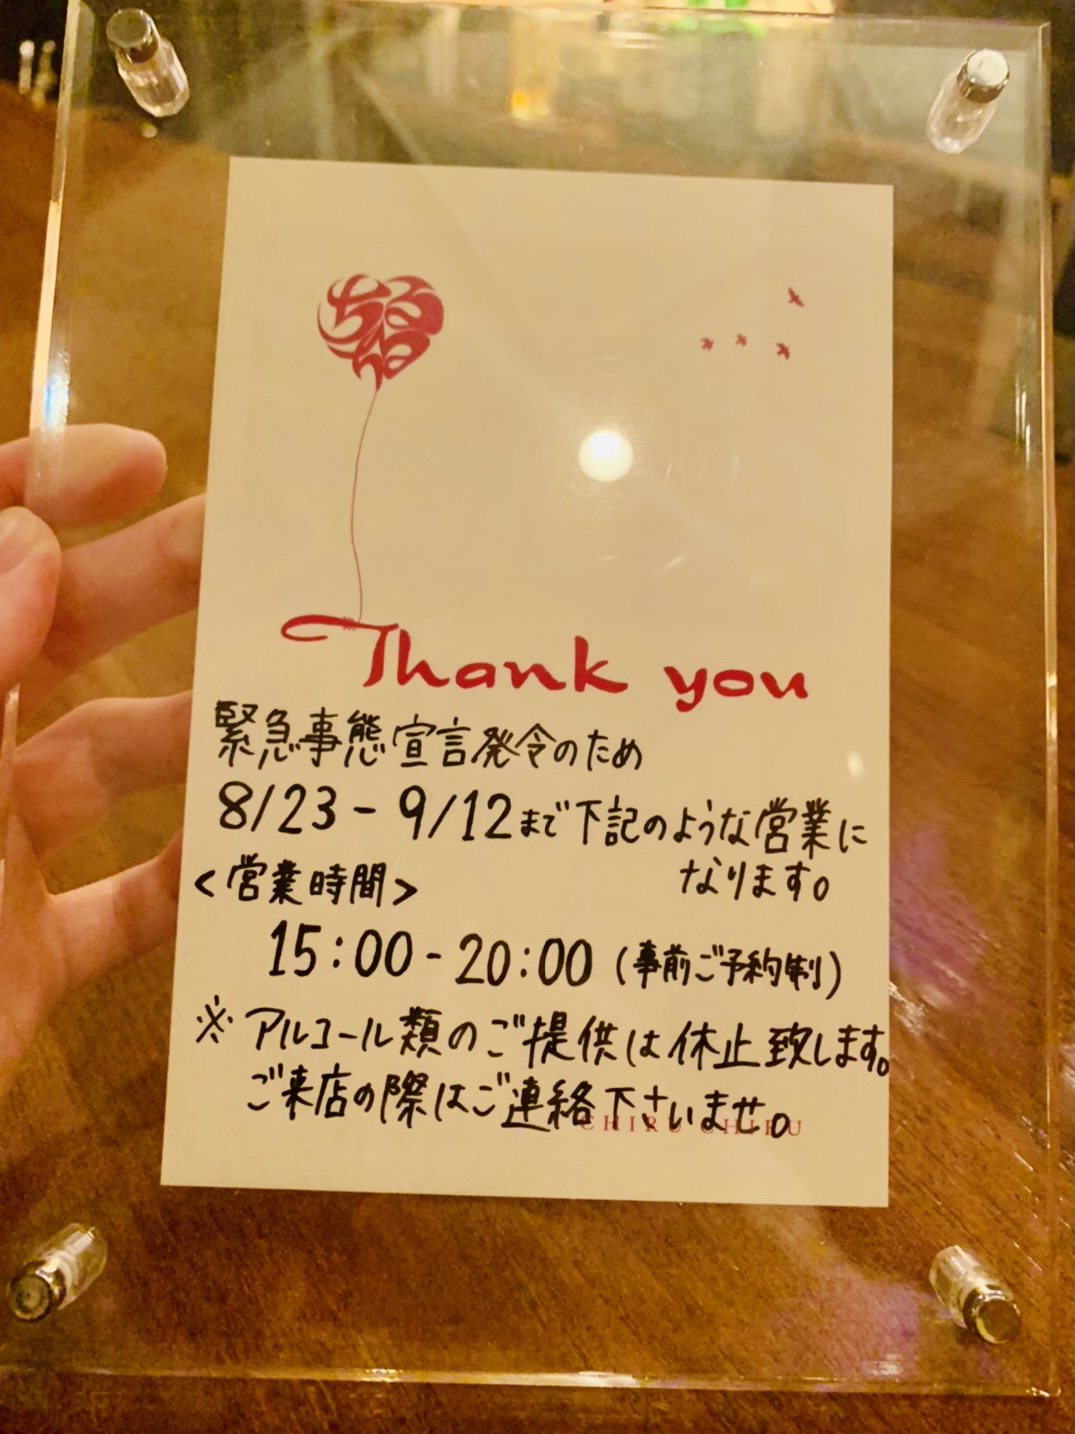 Thank you
緊急事態宣言発令のため
8/23 - 9/12まで下記のような営業に
なります。
<営業時間>
15:00 - 20:00 (事前ご予約制)
※ アルコール類のご提供は休止致します。
ご来店の際はご連絡下さいませ。
CHIRU CHIRU